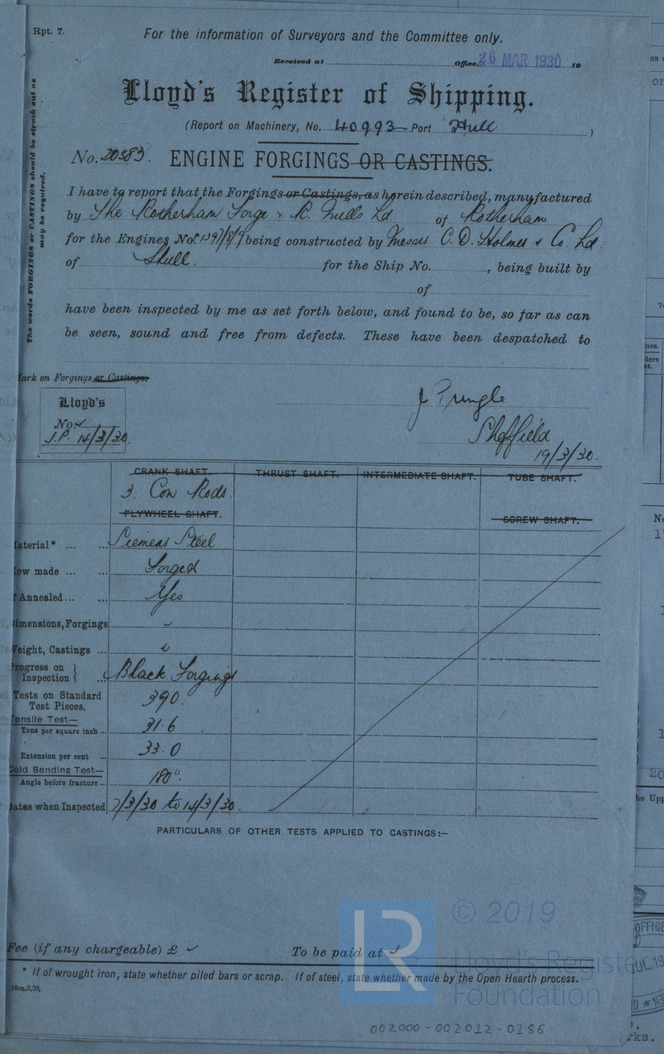 Rpt. 7.
For the information of Surveyors and the Committee only.
Received at Office, 26 MAR 1930 19
Lloyd's Register of Shipping.
(Report on Machinery, No. 40993 Port Hull )
No. 20583. ENGINE FORGINGS OR CASTINGS.
I have to report that the Forgings or Castings, as herein described, manufactured
by The Rotherham Forge & R. Mills Ld of Rotherham
for the Engines No. 1397/8/9 being constructed by Messrs C. D. Holmes & Co. Ld
of Hull. for the Ship No. , being built by
of
have been inspected by me as set forth below, and found to be, so far as can
be seen, sound and free from defects. These have been despatched to
The words FORGINGS or CASTINGS should be struck out as
may be required.
ark on Forgings or Castings.
Lloyd's
No.
J.P. 14/3/30.
J Pringle
Sheffield
19/3/30.
CRANK SHAFT. THRUST SHAFT. INTERMEDIATE SHAFT. TUBE SHAFT.
3. Con Rods.
FLYWHEEL SHAFT. SCREW SHAFT.
aterial* ... ... Siemens Steel
ow made ... ... Forged
f Annealed ... ... Yes
imensions, Forgings -
eight, Castings ...
rogress on
Inspection } ... Black Forgings
Tests on Standard
Test Pieces. 390.
ensile Test—
Tons per square inch - 31.6
Extension per cent - 33.0
old Bending Test—
Angle before fracture - 180°.
ates when Inspected 7/3/30 to 14/3/30.
PARTICULARS OF OTHER TESTS APPLIED TO CASTINGS:—
Fee (if any chargeable) £ To be paid at
* If of wrought iron, state whether piled bars or scrap. If of steel, state whether made by the Open Hearth process.
© 2019
Lloyd's Register
Foundation
LR
002000-002012-0186